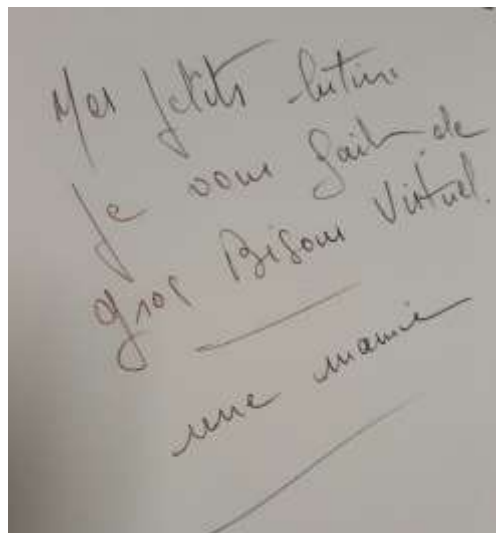 Mes petits lutins
Je vous fait de
gros Bisous Virtuel.
une mamie